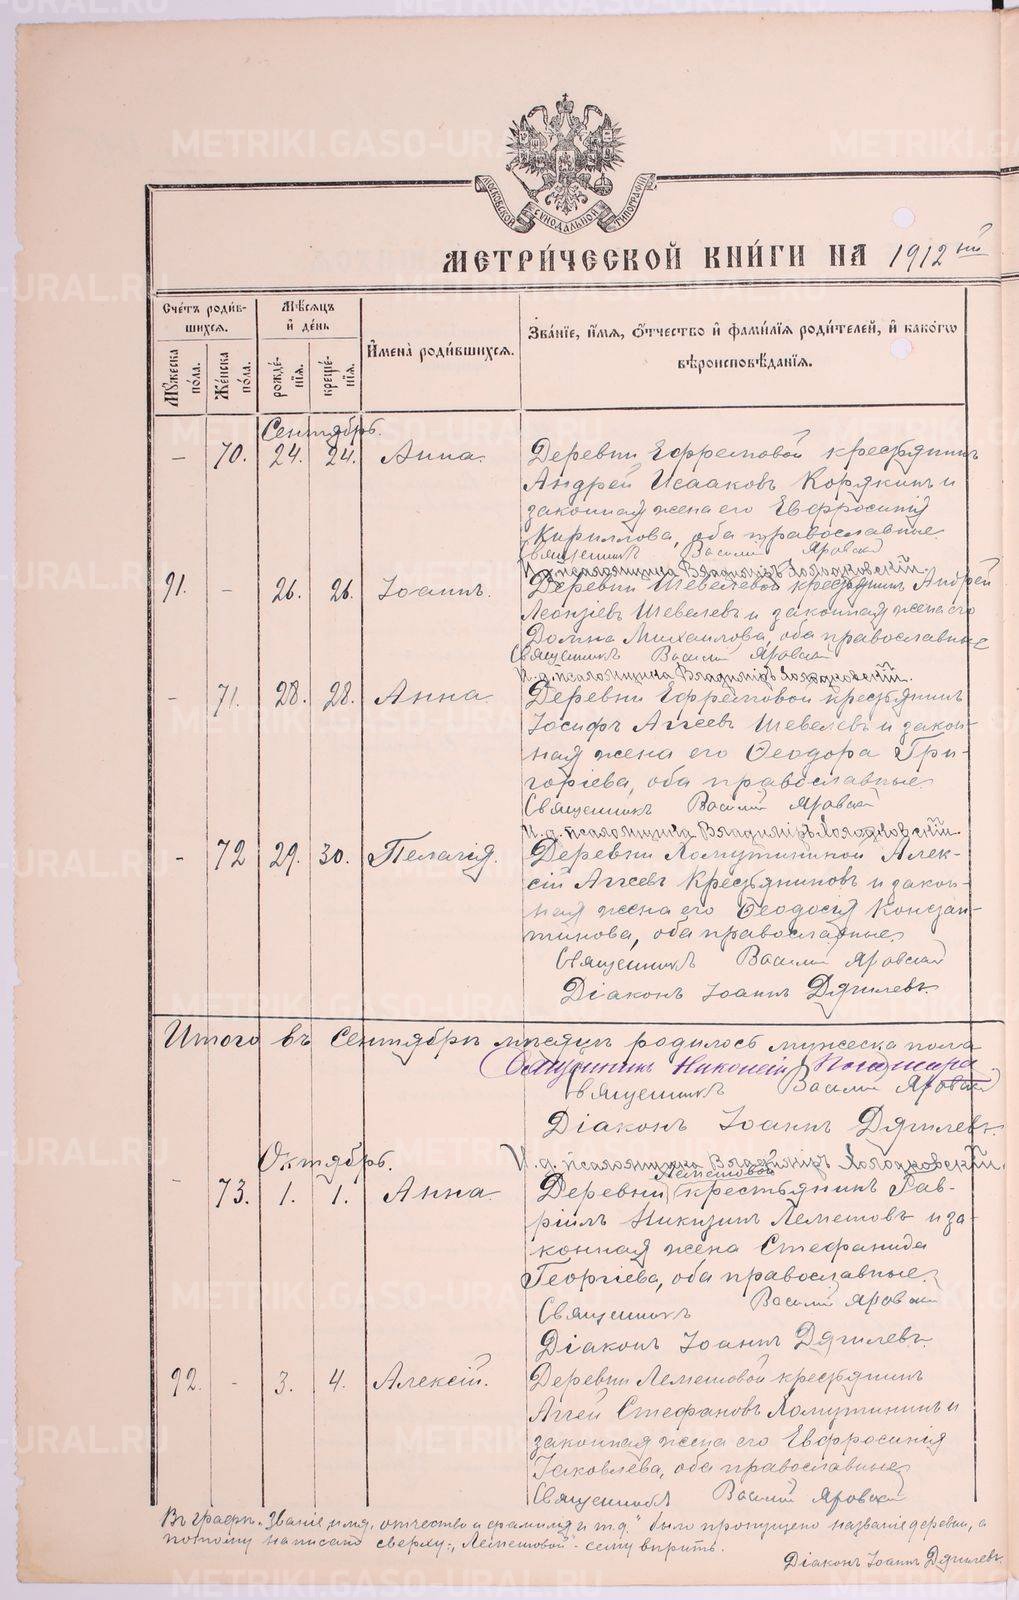 МОСКОВСКОЙ СѴНОДАЛЬНОЙ ТИПОГРАФІИ
МЕТРИ́ЧЕСКОЙ КНИ́ГИ НА 1912 ый
Сче́тъ роди́в-
шихся.
Мѣ́сяцъ
и де́нь
Мꙋ́жеска
по́ла.
Же́нска
по́ла.
рожде́-
нія.
креще́-
нія.
Имена̀ роди́вшихся.
Зва́ніе, и́мя, о́тчество и фами́лія роди́телей, и како́гѡ
вѣроисповѣ́данія.
Сентябрь.
– 70. 24. 24. Анна. Деревни Ефремовой крестьянинъ
Андрей Исааковъ Корякинъ и
законная жена его Евфросинія
Кириллова, оба православные.
Священникъ Василій Яровскій
И. д. псаломщика Владиміръ Холодковскій.
91. – 26. 26. Іоаннъ. Деревни Шевелевой крестьянинъ Андрей
Леонтіевъ Шевелевъ и законная жена его
Домна Михаилова, оба православные
Священникъ Василій Яровскій
И. д. псаломщика Владиміръ Холодковскій.
– 71. 28. 28. Анна. Деревни Ефремовой крестьянинъ
Іосифъ Аггеевъ Шевелевъ и закон-
ная жена его Ѳеодора Гри-
горіева, оба православные.
Священникъ Василій Яровскій
И. д. псаломщика Владиміръ Холодковскій.
– 72 29. 30. Пелагія. Деревни Хомутининой Алек-
сій Аггеевъ Крестьяниновъ и закон-
ная жена его Ѳеодосія Констан-
тинова, оба православные.
Священникъ Василій Яровскій
Діаконъ Іоаннъ Дягилевъ.
Итого въ Сентябрѣ мѣсяцѣ родилось мужеска пола
Священникъ Николай
Священникъ Василій Яровскій
Діаконъ Іоаннъ Дягилевъ.
Октябрь. И. д. псаломщика Владиміръ Холодковскій.
Лемешовой
– 73. 1. 1. Анна. Деревни крестьянинъ Гав-
ріилъ Никитинъ Лемешовъ и за-
конная жена Стефанида
Георгіева, оба православные.
Священникъ Василій Яровскій
Діаконъ Іоаннъ Дягилевъ.
92. – 3. 4. Алексій. Деревни Лемешовой крестьянинъ
Аггей Стефановъ Хомутининъ и
законная жена его Евфросинія
Іаковлева, оба православные.
Священникъ Василій Яровскій
Въ графѣ „Званіе, имя, отчество и фамилія и т.д.“ было пропущено названіе деревни, а
потому написано сверху: „Лемешовой“ – сему вѣрить.
Діаконъ Іоаннъ Дягилевъ.
METRIKI.GASO-URAL.RU